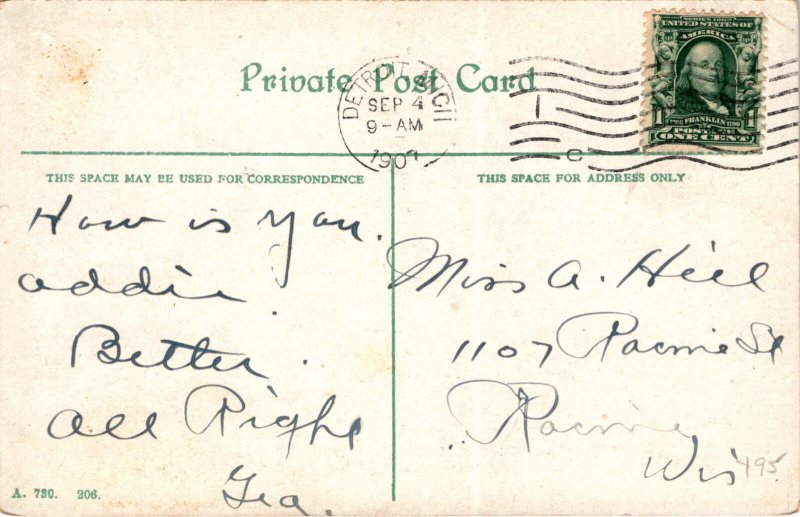 Private Post Card
DETROIT, MICH
SEP 4
9-AM
1907
1
C
SERIES 1902
UNITED STATES OF
AMERICA
FRANKLIN
1 POSTAGE 1
ONE CENT
THIS SPACE MAY BE USED FOR CORRESPONDENCE
How is you.
addie.
Better.
all Right
Geo.
A. 730. 206.
THIS SPACE FOR ADDRESS ONLY
Miss A. Hill
1107 Racine St
Racine
Wis
495